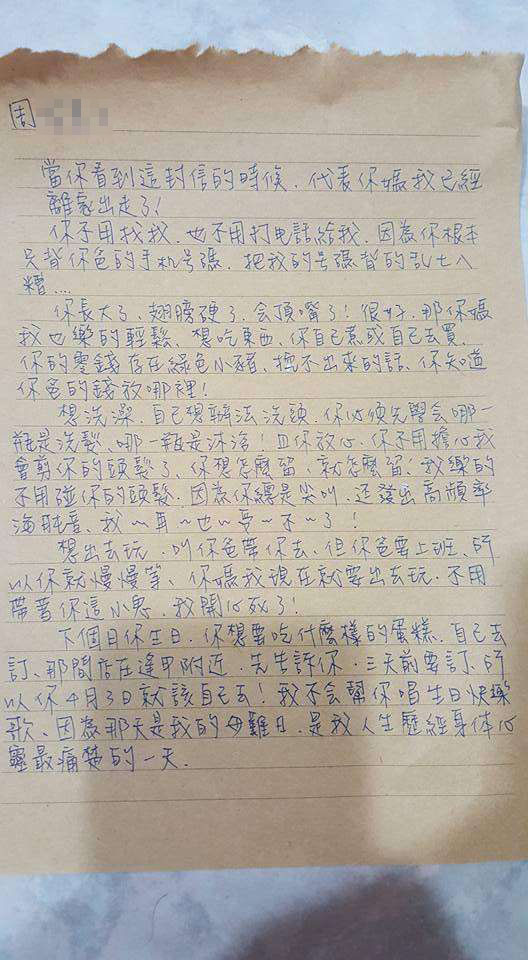 周
當你看到這封信的時候、代表你媽我已經
離家出走了!
你不用找我、也不用打电話給我、因為你根本
只背你爸的手机号碼、把我的号碼背的乱七八
糟....
你長大了、翅膀硬了、会頂嘴了!很好、那你媽
我也樂的輕鬆、想吃東西、你自己煮或自己去買、
你的零錢存在綠色小豬、挖不出來的話、你知道
你爸的錢放哪裡!
想洗澡、自己想辦法洗頭、你必須先學会哪一
瓶是洗髮、哪一瓶是沐浴!且你放心、你不用擔心我
會剪你的頭髮了、你想怎麼留、就怎麼留!我樂的
不用碰你的頭髮、因為你總是尖叫、还發出高頻率
海豚音、我~再~也~受~不~了!
想出去玩、叫你爸帶你去、但你爸要上班、所
以你就慢慢等、你媽我現在就要出去玩、不用
帶著你這小鬼、我開心死了!
下個月你生日、你想要吃什麼樣的蛋糕、自己去
訂、那間店在逢甲附近、先告訴你、三天前要訂、所
以你4月3日就該自己去!我不会幫你唱生日快樂
歌、因為那天是我的母難日、是我人生歷經身体心
靈最痛楚的一天.